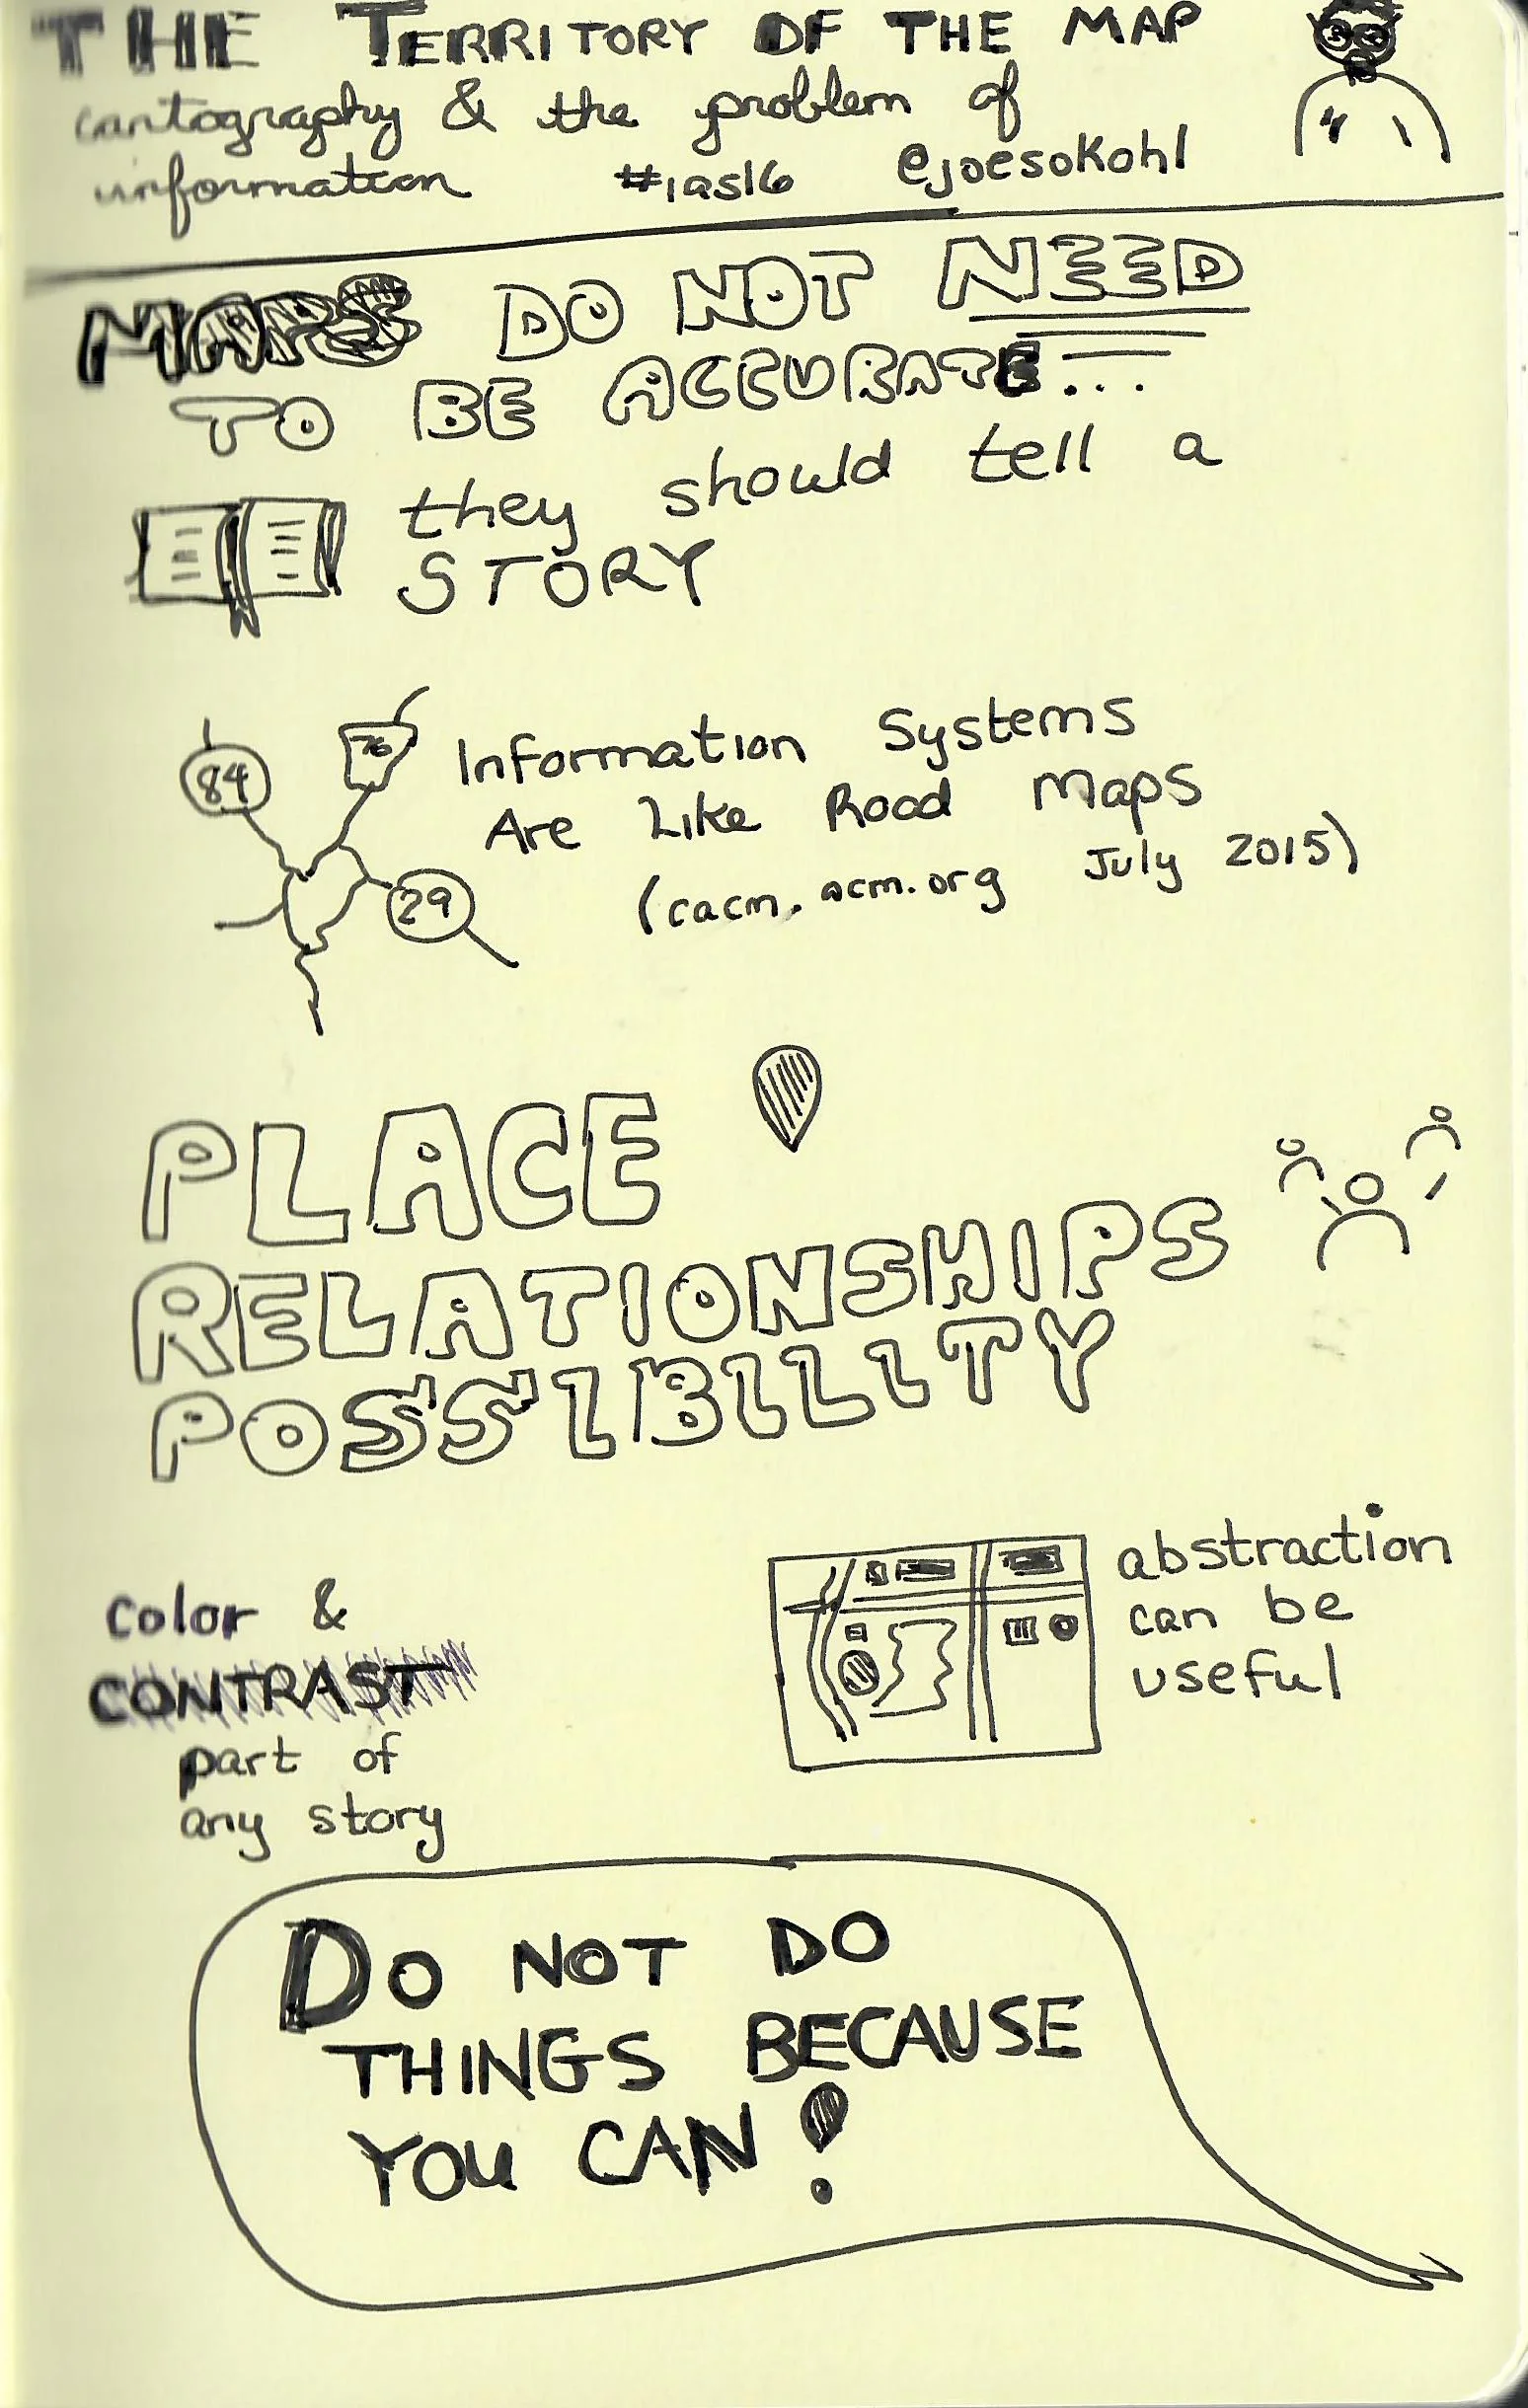 THE TERRITORY OF THE MAP
cartography & the problem of
information #ias16 @joesokohl
MAPS DO NOT NEED
TO BE ACCURATE...
they should tell a
STORY
84
76
29
Information Systems
Are Like Road Maps
(cacm.acm.org July 2015)
PLACE
RELATIONSHIPS
POSSIBILITY
abstraction
can be
useful
color &
CONTRAST
part of
any story
DO NOT DO
THINGS BECAUSE
YOU CAN!